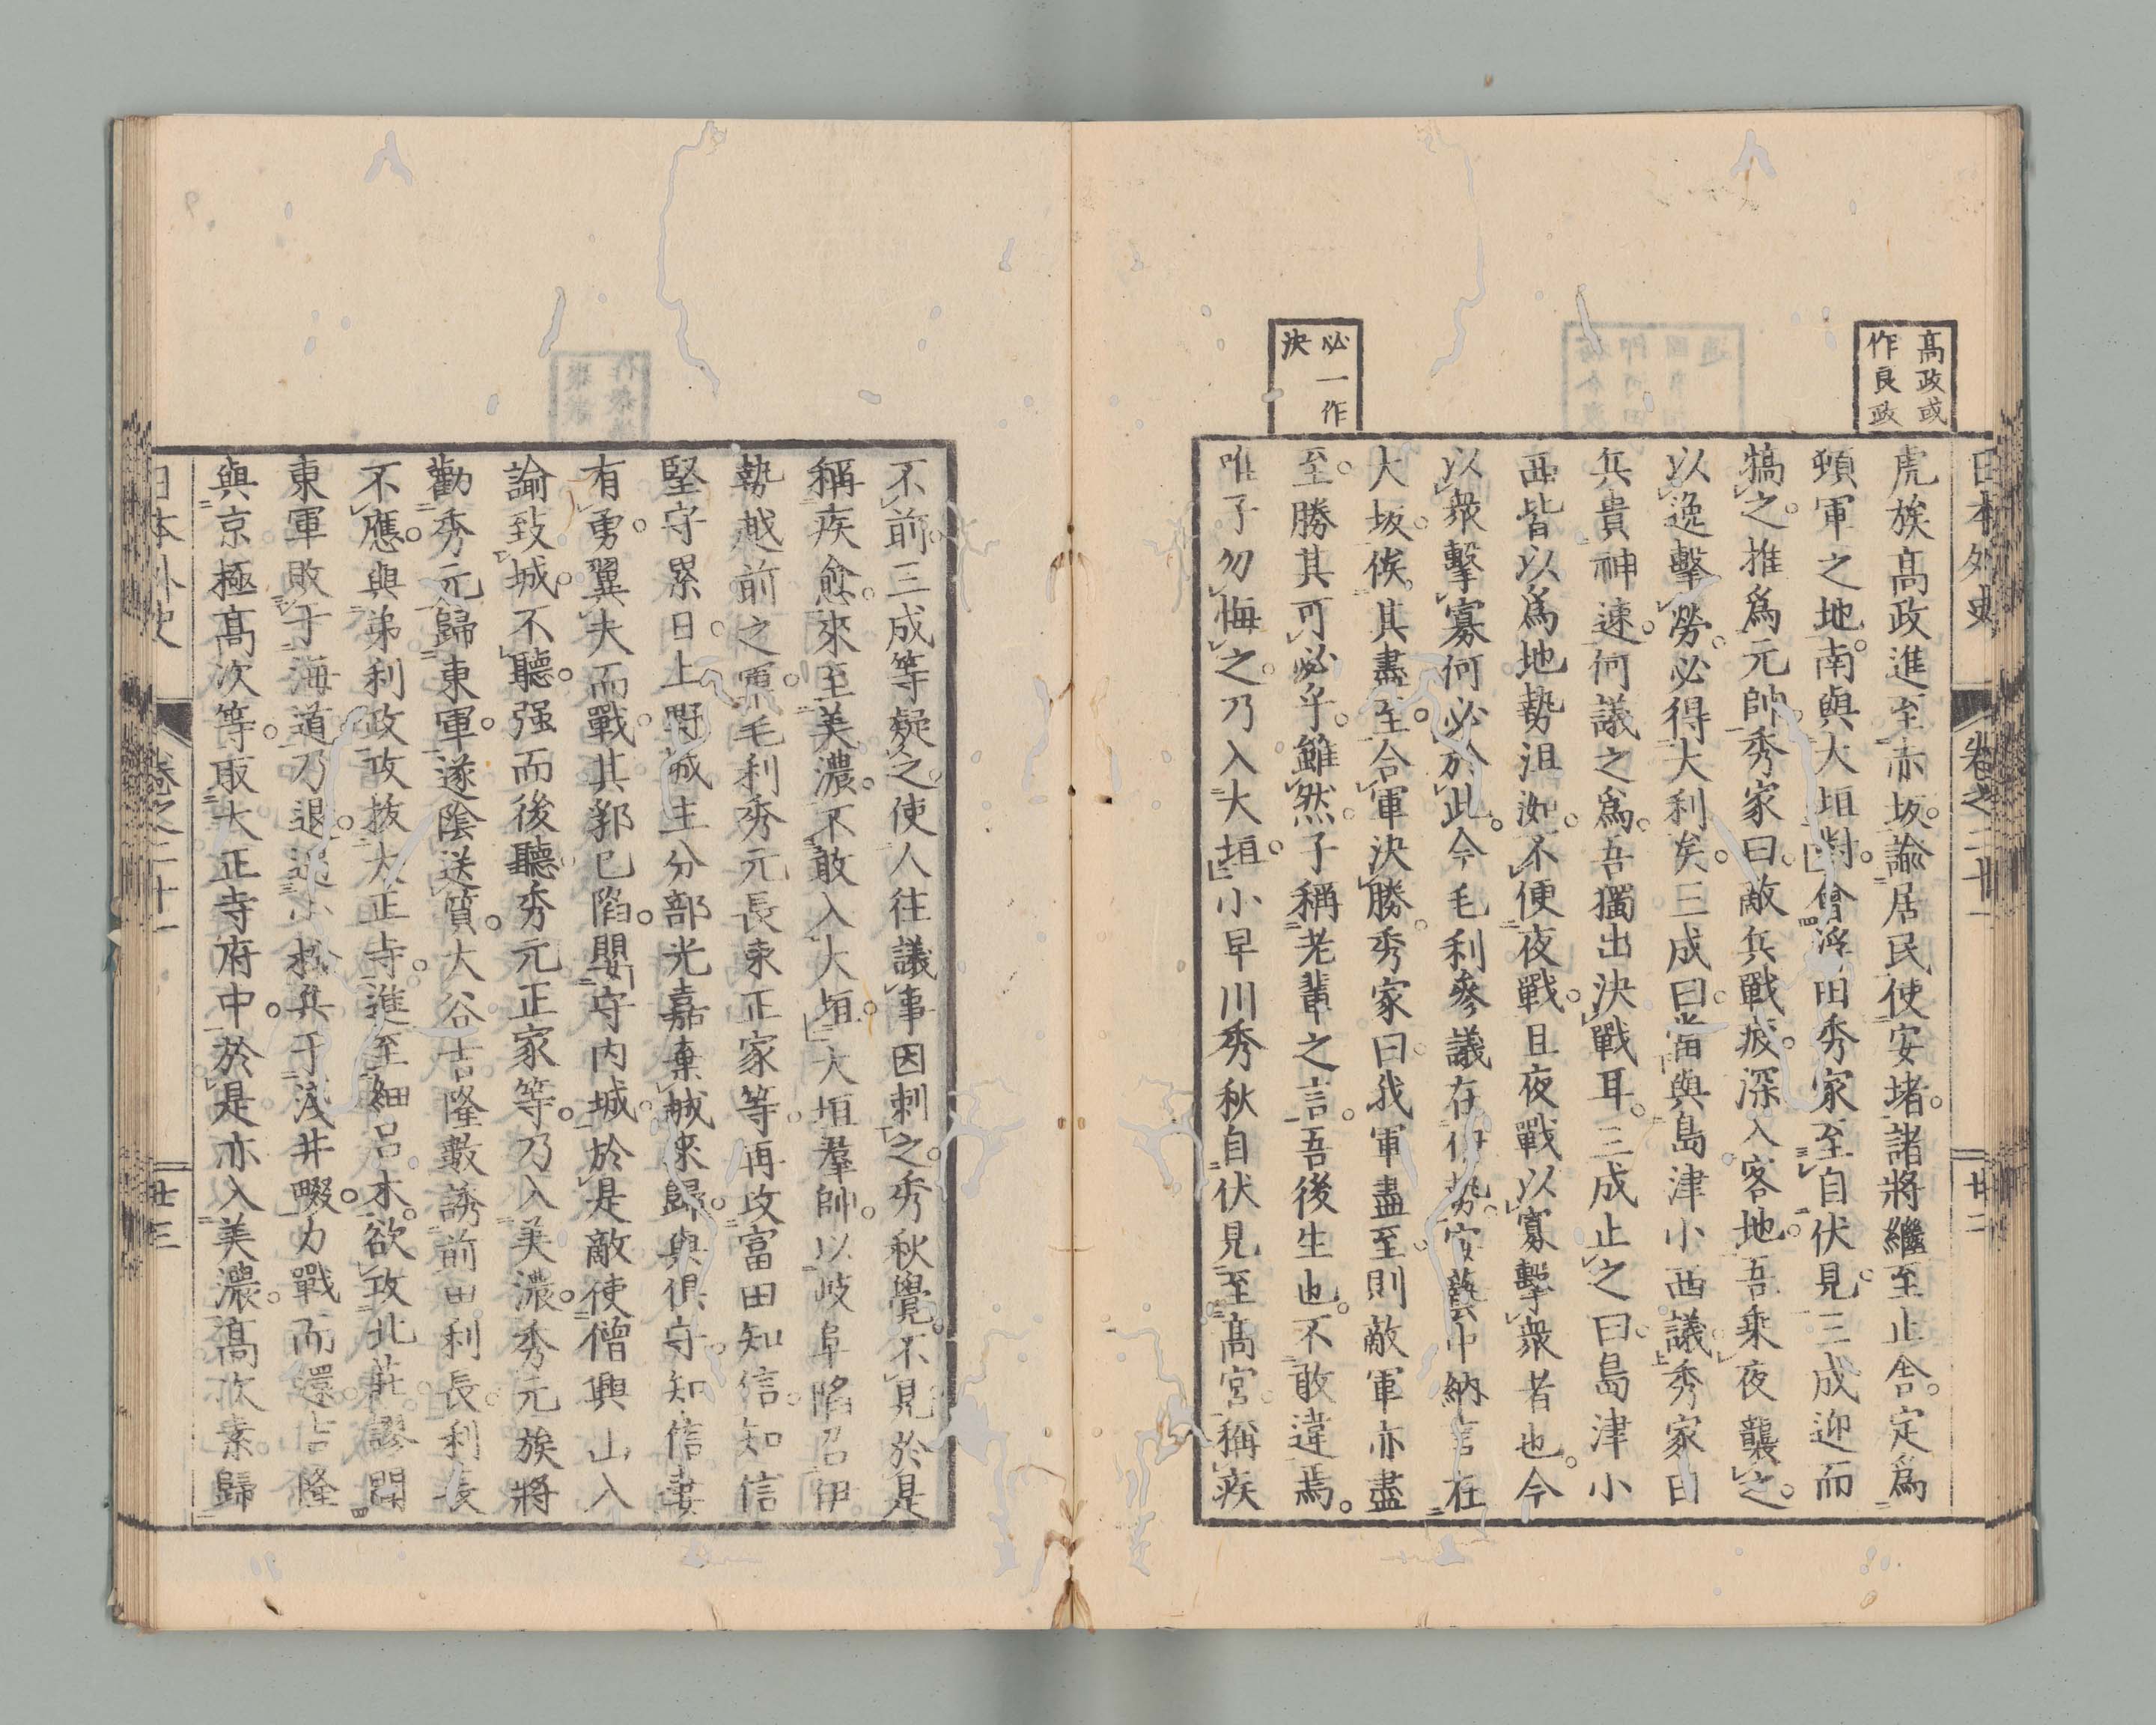 日本外史
卷之二十一
廿二
高政或
作良政
必一作
決
虎族高政進至赤坂。諭居民使安堵。諸將繼至止舍。定爲
頓軍之地。南與大垣對。會浮田秀家至自伏見。三成迎而
犒之。推爲元帥。秀家曰。敵兵戰疲。深入客地。吾乘夜襲之。
以逸擊勞。必得大利矣。三成曰。當與島津小西議。秀家曰
兵貴神速。何議之爲。吾獨出決戰耳。三成止之曰。島津小
西皆以爲地勢沮洳。不便夜戰。且夜戰以寡擊衆者也。今
以衆擊寡。何必於此。今毛利參議在伊勢。安藝中納言在
大坂。俟其盡至。合軍決勝。秀家曰。我軍盡至則敵軍亦盡
至。勝其可必乎。雖然。子稱老輩之言。吾後生也。不敢違焉。
唯子勿悔之。乃入大垣。小早川秀秋自伏見至高宮。稱疾
不前。三成等疑之。使人往議事因刺之。秀秋覺。不見於是
稱疾愈。來至美濃。不敢入大垣。大垣羣帥。以岐阜陷召伊
勢越前之軍。毛利秀元長束正家等。再攻富田知信。知信
堅守累日。上野城主分部光嘉棄城來歸。與俱守。知信妻
有勇。翼夫而戰。其郛已陷。嬰守内城。於是敵使僧興山入
諭致城。不聽。强而後聽。秀元正家等。乃入美濃。秀元族將
勸秀元歸東軍。遂陰送質。大谷吉隆數誘前田利長。利長
不應。與弟利政攻拔大正寺。進至細呂木。欲攻北莊。謬聞
東軍敗于海道乃退。退小松兵于淺井畷。力戰而還。吉隆
與京極高次等。取大正寺府中。於是亦入美濃。高次素歸
日本外史
卷之二十一
廿三